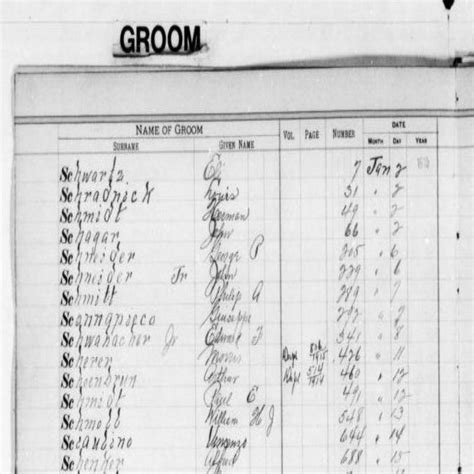 GROOM
NAME OF GROOM VOL. PAGE NUMBER DATE
SURNAME GIVEN NAME MONTH DAY YEAR
Schwartz Eli 7 Jan 2
Schradnick Louis 31 " 2
Schmidt Herman 49 " 2
Schagar John 66 " 2
Schneider George P 205 " 6
Schneider Jr John 229 " 6
Schmitt Philip A 289 " 7
Scannapieco Giuseppe 292 " 7
Schwabacher Jr Edward F 341 " 8
Scherer Morris 426 " 11
Schoenbrun Arthur 460 " 12
Schmidt Paul C 491 " 12
Schmoll William H J 548 " 13
Scaudino Vincenzo 644 " 14
Schenker Alfred 688 " 15